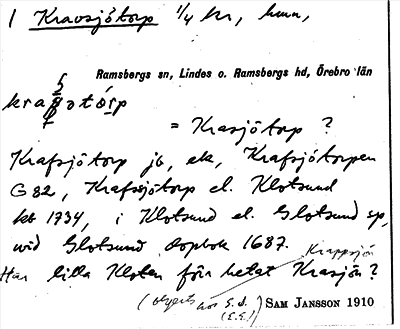 1 Kravsjötorp 1/4 hr, hmn,
Ramsbergs sn, Lindes o. Ramsbergs hd, Örebro län
= Krasjötorp ?
Krafsjötorp jb, ek, Krafsjötorpen
G 82, Krafsjötorp el. Klotsund
kb 1734, i Klotsund el. Glotsund sp,
vid Glotsund dopbok 1687.
Krappsjön
Har lilla Kloten förr hetat Krasjön?
hos G. S.
SAM JANSSON 1910
(E.G!)